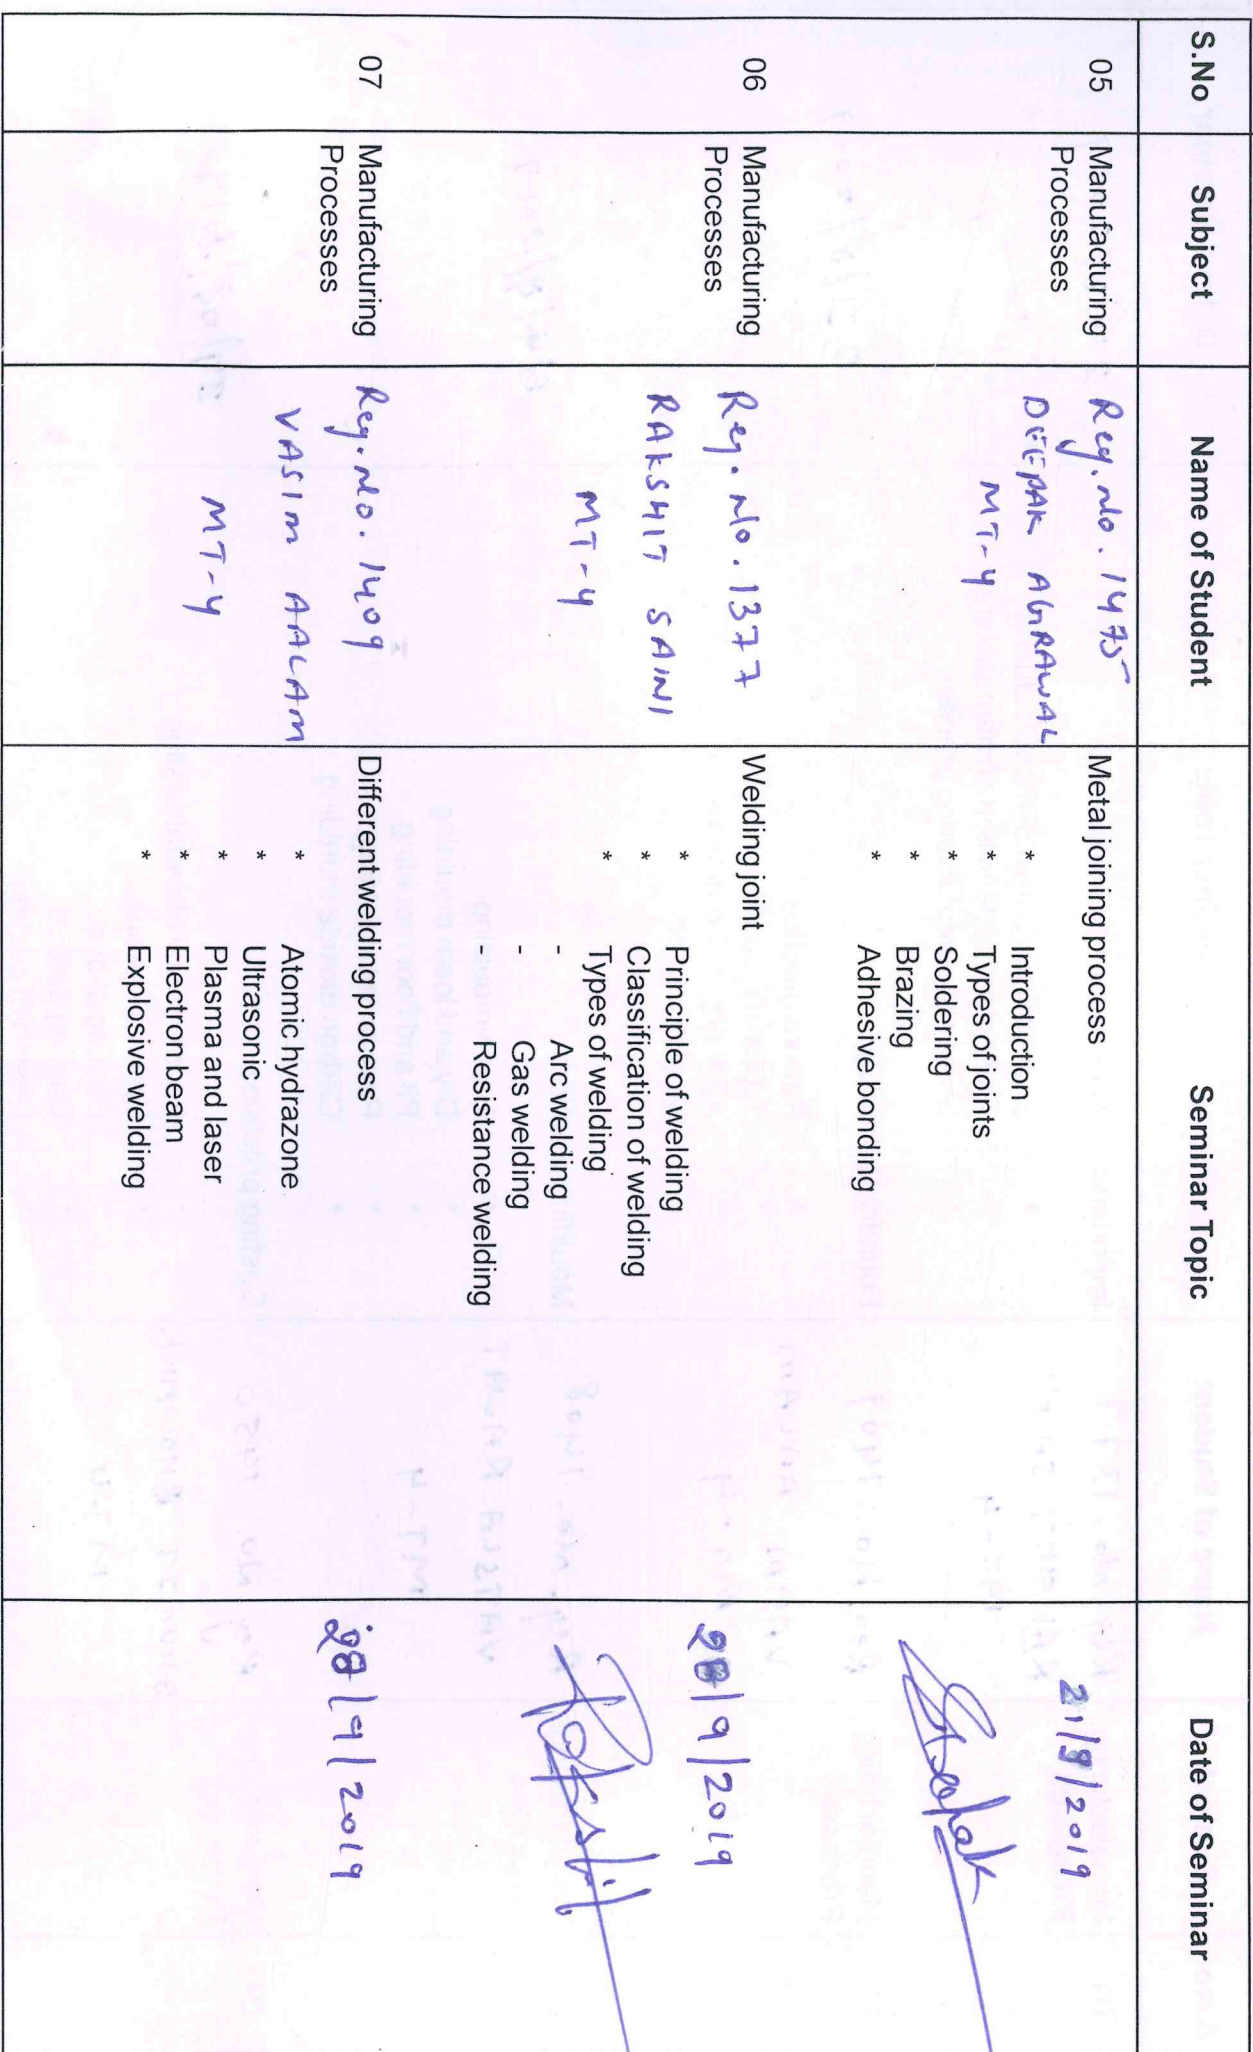 S.No Subject Name of Student Seminar Topic Date of Seminar
05 Manufacturing Processes
Reg. No. 1475
DEEPAK AGRAWAL
MT-4
Metal joining process
* Introduction
* Types of joints
* Soldering
* Brazing
* Adhesive bonding
21/9/2019
Deepak
06 Manufacturing Processes
Reg. No. 1377
RAKSHIT SAINI
MT-4
Welding joint
* Principle of welding
* Classification of welding
* Types of welding
- Arc welding
- Gas welding
- Resistance welding
28/9/2019
Rakshit
07 Manufacturing Processes
Reg. No. 1409
VASIM AALAM
MT-4
Different welding process
* Atomic hydrazone
* Ultrasonic
* Plasma and laser
* Electron beam
* Explosive welding
28/9/2019